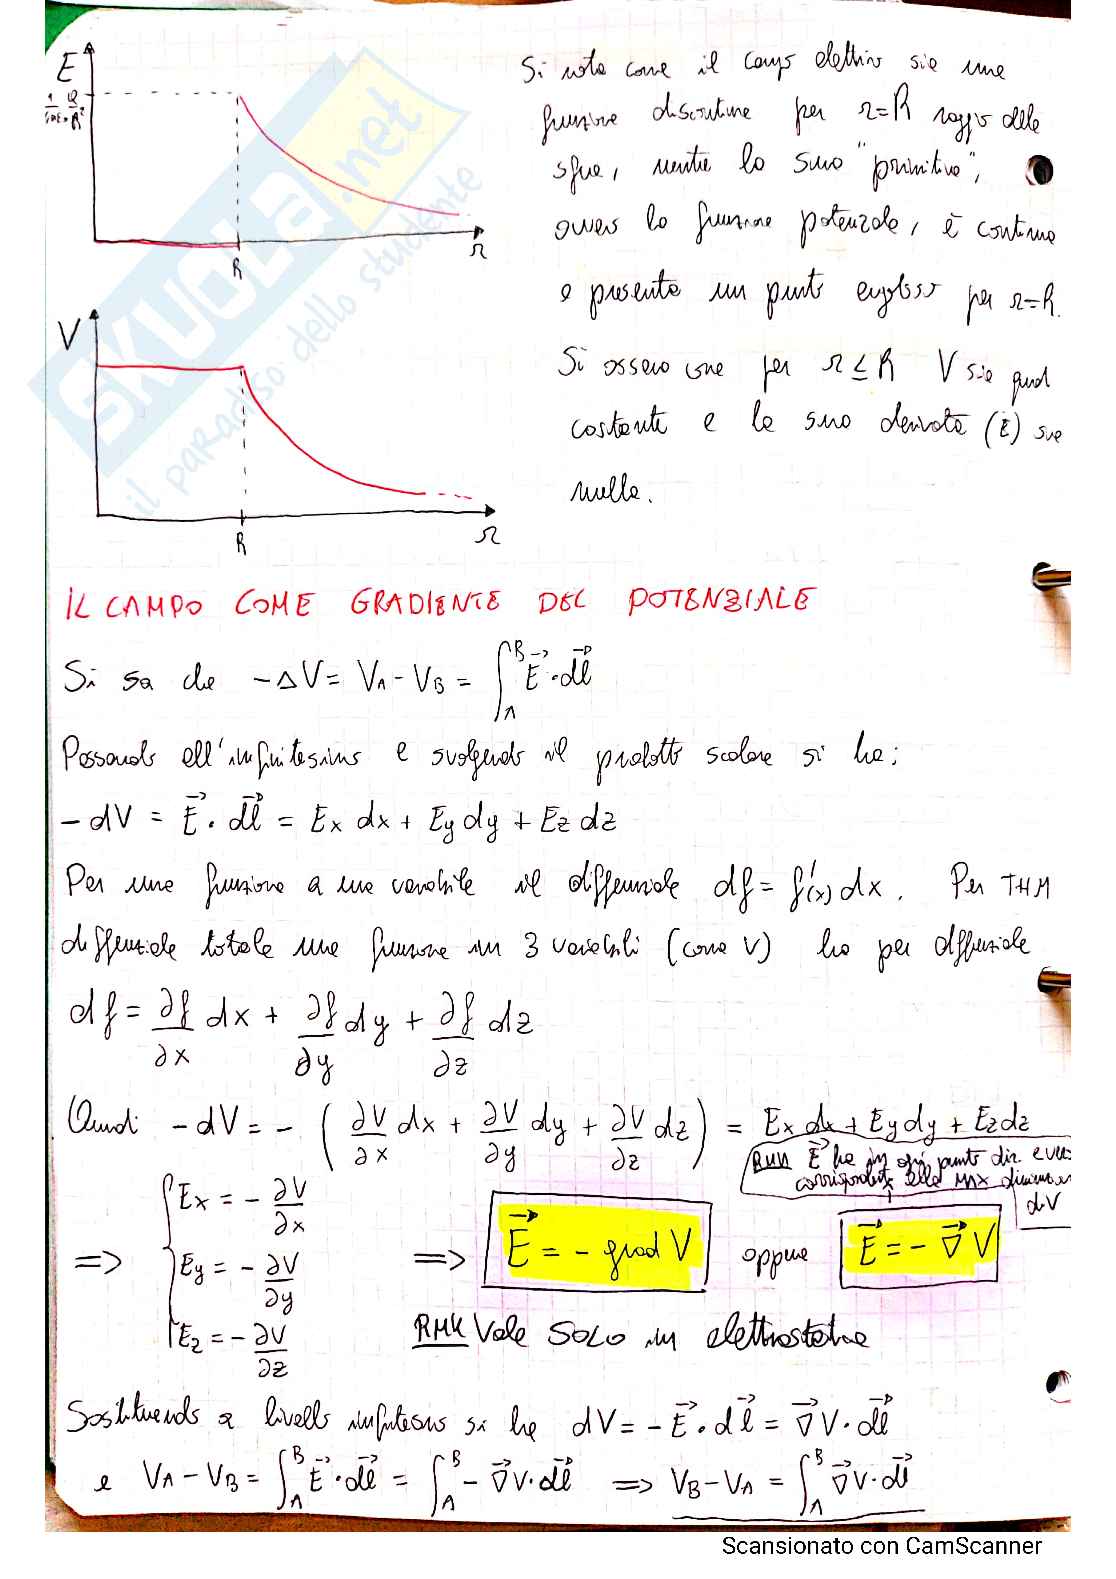 E
1/4πε₀ Q/R²
R
r
V
R
r
Si nota come il campo elettrico sia una
funzione discontinua per r=R raggio della
sfera, mentre la sua "primitiva",
ovvero la funzione potenziale, è continua
e presenta un punto angoloso per r=R.
Si osserva come per r ≤ R V sia quindi
costante e la sua derivata (E) sia
nulla.
SKUOLA.net
il paradiso dello studente
IL CAMPO COME GRADIENTE DEL POTENZIALE
Si sa che -ΔV = V_A - V_B = ∫_A^B E⃗ · dl⃗
Passando all'infinitesimo e svolgendo il prodotto scalare si ha:
-dV = E⃗ · dl⃗ = Ex dx + Ey dy + Ez dz
Per una funzione a una variabile il differenziale df = f'(x) dx. Per THM
differenziale totale una funzione in 3 variabili (come V) ha per differenziale
df = ∂f/∂x dx + ∂f/∂y dy + ∂f/∂z dz
Quindi -dV = - ( ∂V/∂x dx + ∂V/∂y dy + ∂V/∂z dz ) = Ex dx + Ey dy + Ez dz
RMK E⃗ ha in ogni punto dir. e verso
corrispondente alla MAX diminuzione
di V
=> { Ex = - ∂V/∂x
Ey = - ∂V/∂y
Ez = - ∂V/∂z
=> E⃗ = - grad V oppure E⃗ = - ∇⃗ V
RMK Vale SOLO in elettrostatica
Sostituendo a livello infinitesimo si ha dV = - E⃗ · dl⃗ = ∇⃗ V · dl⃗
e V_A - V_B = ∫_A^B E⃗ · dl⃗ = ∫_A^B - ∇⃗ V · dl⃗ => V_B - V_A = ∫_A^B ∇⃗ V · dl⃗
Scansionato con CamScanner